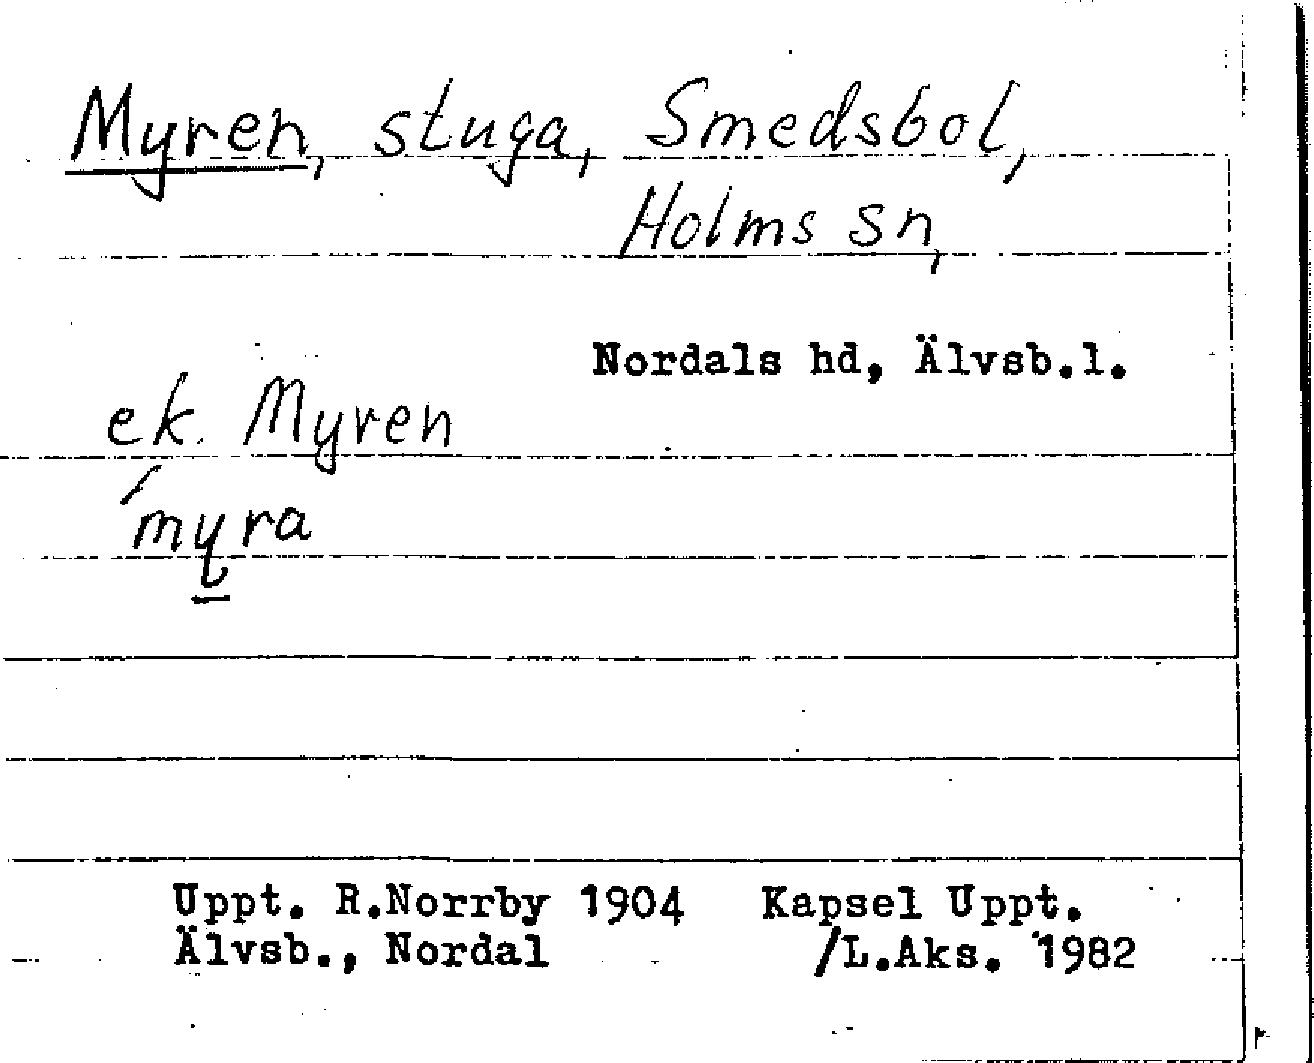 Myren, stuga, Smedsbol,
Holms sn,
Nordals hd, Älvsb.l.
ek. Myren
´myra
Uppt. R.Norrby 1904 Kapsel Uppt.
Älvsb., Nordal /L.Aks. 1982